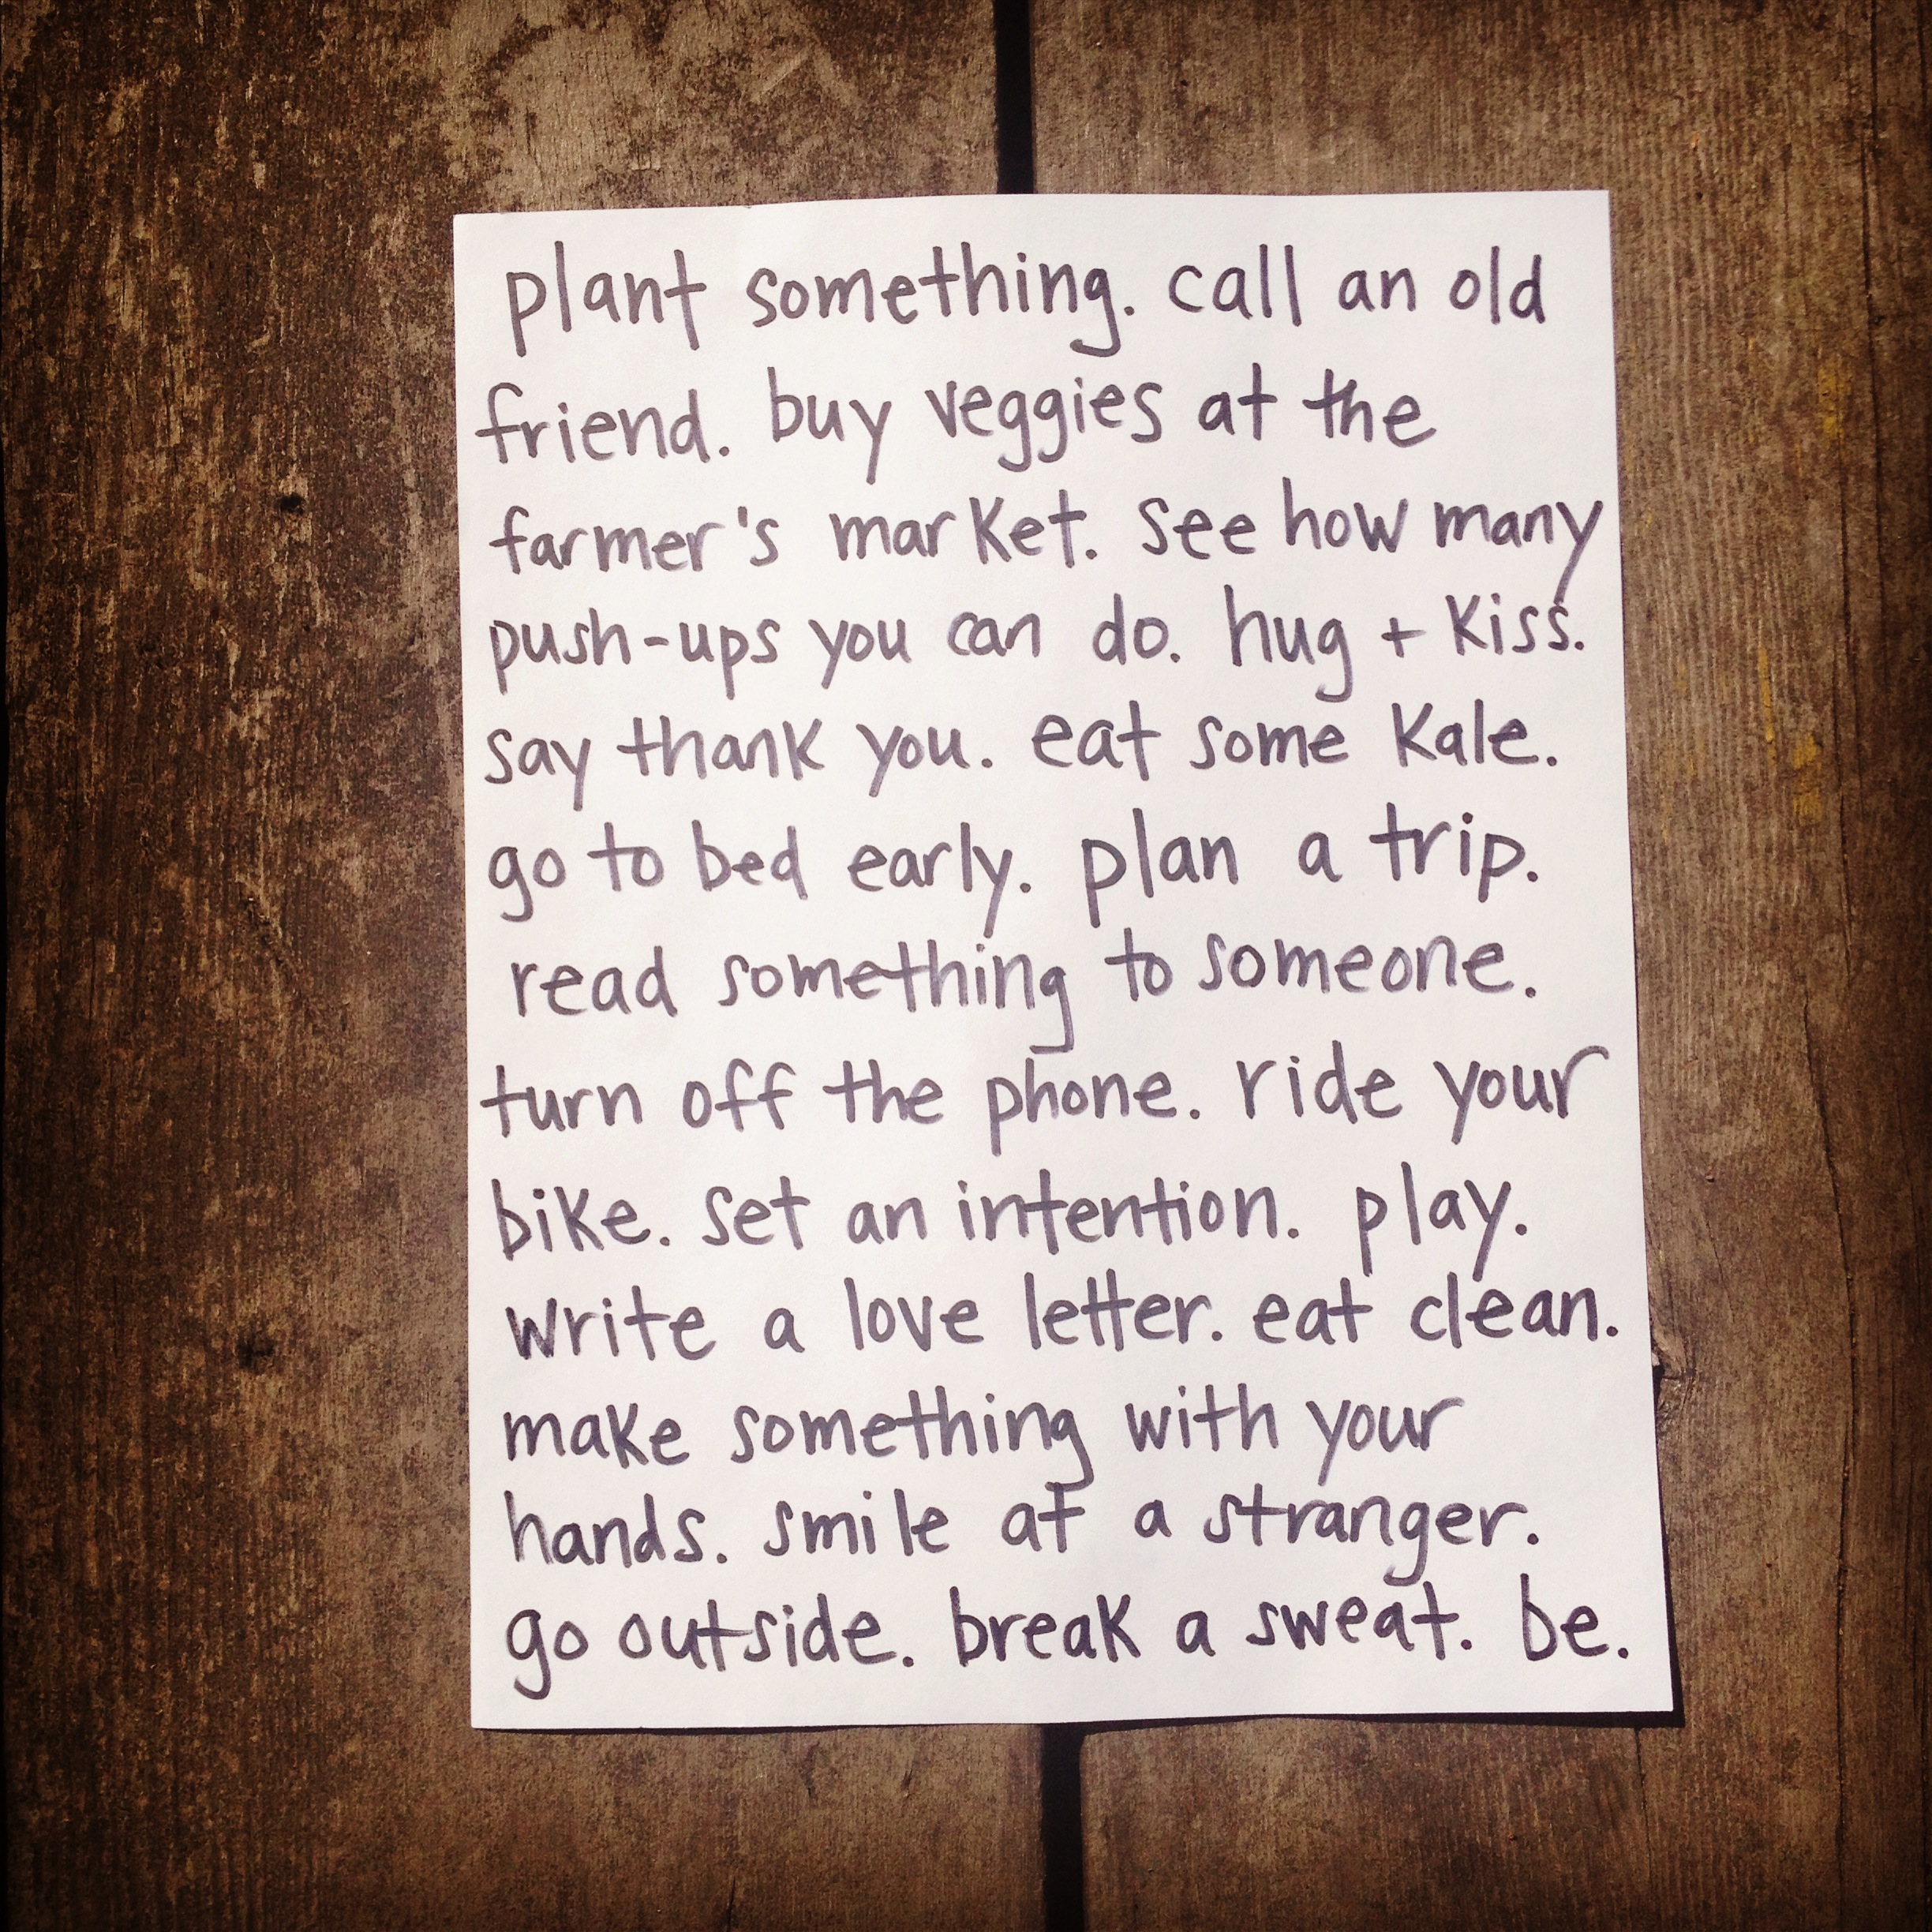 plant something. call an old
friend. buy veggies at the
farmer's market. see how many
push-ups you can do. hug + kiss.
say thank you. eat some kale.
go to bed early. plan a trip.
read something to someone.
turn off the phone. ride your
bike. set an intention. play.
write a love letter. eat clean.
make something with your
hands. smile at a stranger.
go outside. break a sweat. be.